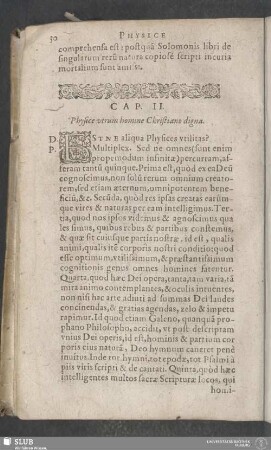 30 PHYSICE
comprehensa est: postquā Solomonis libri de
singularum rerū natura copiosè scripti incuria
mortalium sunt
CAP. II.
Physice utrum homine Christiano digna.
D. ESTNE aliqua Physices utilitas?
P. Multiplex. Sed ne omnes (sunt enim
propemodum infinitæ) percurram, af-
feram tantū quinque. Prima est, quòd ex ea Deū
cognoscimus, non solū rerum omnium creato-
rem, sed etiam æternum, omnipotentem benefi-
cū, &c. Secūda, quòd res ipsas creatas earum-
que vires & naturas per eam intelligimus. Ter-
tia, quòd nos ipsos videmus & agnoscimus qua
les simus, quibus rebus & partibus constemus,
& quæ sit cuiusque partis nostræ, id est, qualis
animi, qualis itē corporis nostri conditio: quod
esse optimum, utilissimum, & præstantissimum
cognitionis genus omnes homines fatentur.
Quarta, quòd hæc Dei opera, tanta, tam varia, tā
mira animo contemplantes, & oculis intuentes,
non nisi hac arte aduti ad summas Dei laudes
concinendas, & gratias agendas, zelo & impetu
rapimur. Id quod etiam Galeno, quamquā pro-
phano Philosopho, accidit, ut post descriptam
unius Dei operis, id est, hominis & partium cor
poris eius naturā, Deo hymnum caneret penè
inuitus. Inde tot hymni, tot epodæ, tot Psalmi à
piis viris scripti & decantati. Quinta, quòd hæc
intelligentes multos sacræ Scripturæ locos, qui
homi-
SLUB